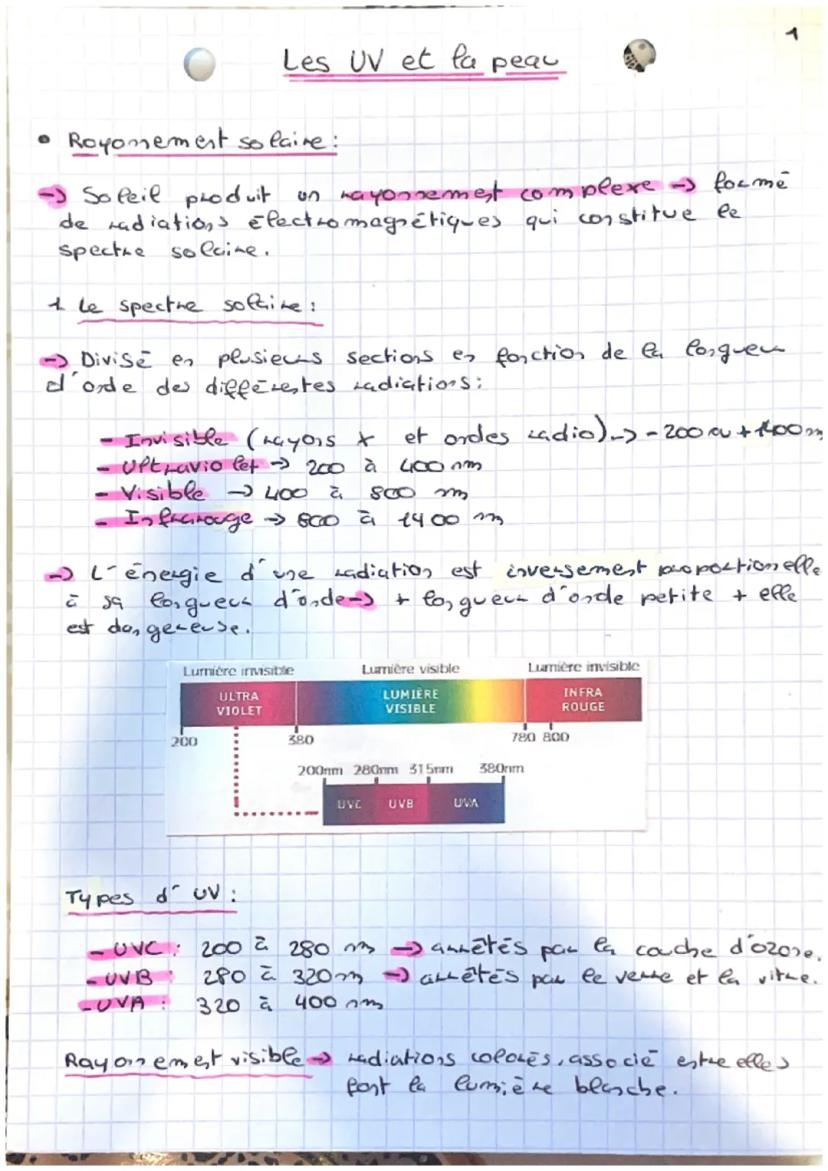 1
Les UV et la peau
• Rayonnement solaire :
→ Soleil produit un rayonnement complexe → formé
de radiations électromagnétiques qui constitue le
spectre solaire.
1 Le spectre solaire :
→ Divisé en plusieurs sections en fonction de la longueur
d'onde des différentes radiations :
- Invisible (rayons x et ondes radio) → - 200 ou + 1400 nm
- Ultraviolet → 200 à 400 nm
- Visible → 400 à 800 nm
- Infrarouge → 800 à 1400 nm
→ L'énergie d'une radiation est inversement proportionelle
à sa longueur d'onde → + longueur d'onde petite + elle
est dangereuse.
Lumière invisible Lumière visible Lumière invisible
ULTRA VIOLET LUMIÈRE VISIBLE INFRA ROUGE
200 380 780 800
200nm 280nm 315nm 380nm
UVC UVB UVA
Types d'UV :
- UVC : 200 à 280 nm → arrêtés par la couche d'ozone.
- UVB : 280 à 320 nm → arrêtés par le verre et la vitre.
- UVA : 320 à 400 nm
Rayonnement visible → radiations colorés, associé entre elles
font la lumière blanche.